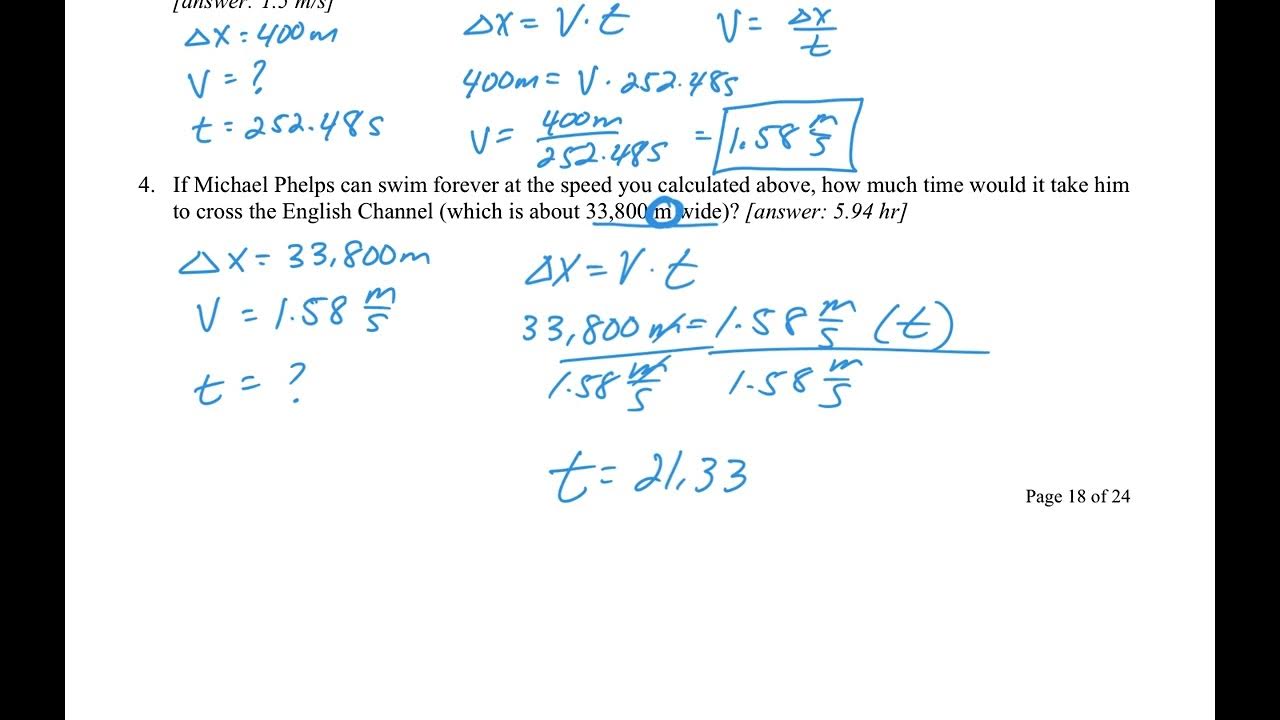 [answer: 1.5 m/s]
Δx = 400m
Δx = V · t
V = Δx/t
V = ?
400m = V · 252.48s
t = 252.48s
V = 400m/252.48s = 1.58 m/s
4. If Michael Phelps can swim forever at the speed you calculated above, how much time would it take him
to cross the English Channel (which is about 33,800 m wide)? [answer: 5.94 hr]
Δx = 33,800m
Δx = V · t
V = 1.58 m/s
33,800 m = 1.58 m/s (t)
1.58 m/s 1.58 m/s
t = ?
t = 21,33
Page 18 of 24